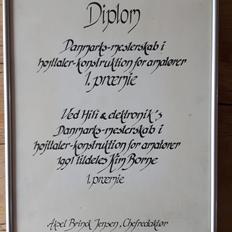 Diplom
Danmarks-mesterskab i
højttaler-konstruktion for amatører
1. præmie
Ved Hifi & elektronik's
Danmarks-mesterskab i
højttaler-konstruktion for amatører
1991 tildeles Kim Borne
1. præmie
Aksel Brinck Jensen, Chefredaktør